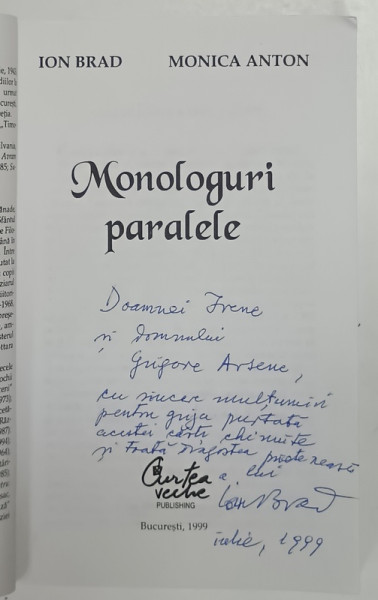 ION BRAD MONICA ANTON
Monologuri
paralele
Doamnei Irene
și domnului
Grigore Arsene,
cu sincere mulțumiri
pentru grija purtată
acestei cărți chinuite
și toată dragostea prietenească
a lui
Curtea
veche
PUBLISHING
Ion Brad
București, 1999
iulie, 1999